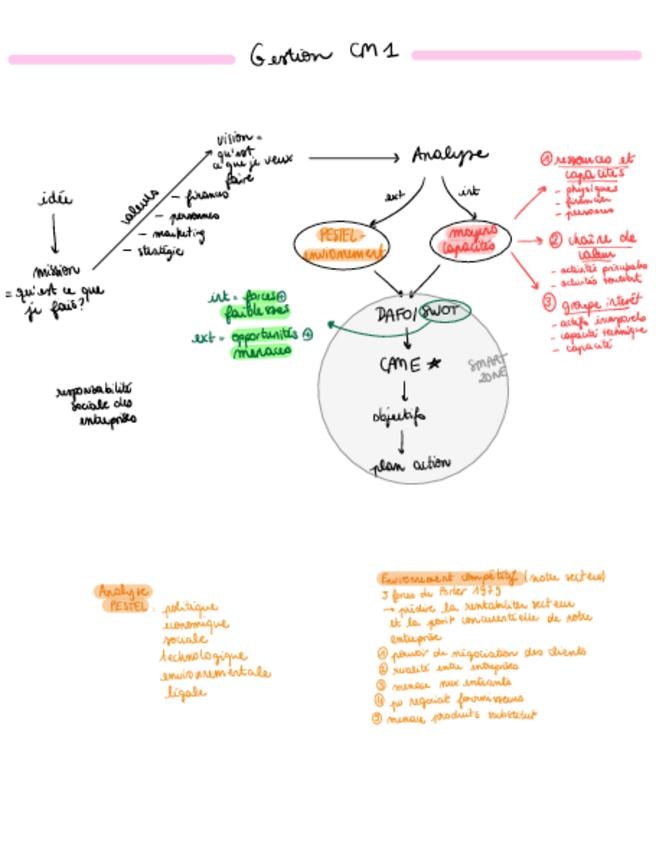 Gestion CM1
idée
mission
= qu'est ce que
je fais?
valeurs
- finances
- personnes
- marketing
- stratégie
vision =
qu'est
ce que je veux
faire
Analyse
ext
int
PESTEL -
environnement
moyens
capacités
① ressources et
capacités
- physiques
- financier
- personnes
② chaîne de
valeur
- activités principales
- activités soutient
③ groupe interêt
- actifs
- capacité technique
- capacité
int = forces ⊕
faiblesses
ext = opportunités ⊕
menaces
DAFO/SWOT
CAME ★
objectifs
plan action
SMART
ZONE
responsabilité
sociale des
entreprises
Analyse
PESTEL : politique
economique
sociale
technologique
environnementale
légale
Environnement compétitif (notre secteur)
5 forces de Porter 1979
→ prédire la rentabilité secteur
et la posit concurentielle de notre
entreprise
① pouvoir de négociation des clients
② rivalité entre entreprises
③ menace nux entrants
④ pv négociat fournisseurs
⑤ menace produits substitut